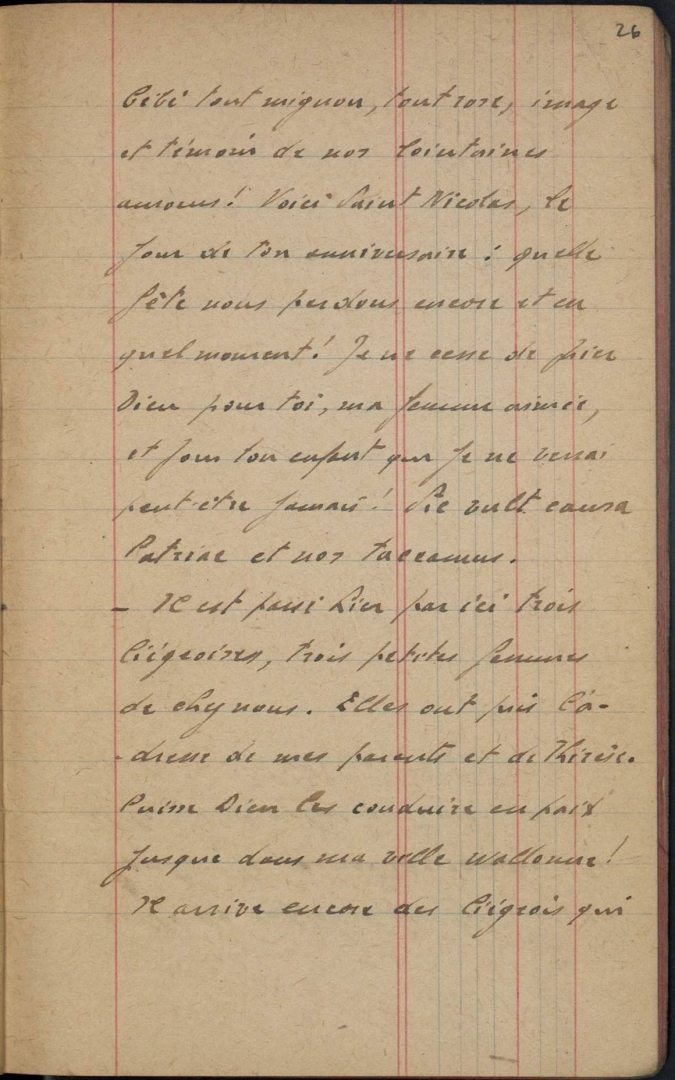 26
bébé tout mignon, tout rose, image
et témoin de nos lointaines
amours! Voici Saint Nicolas, le
jour de ton anniversaire : quelle
fête nous perdons encore et en
quel moment! Je ne cesse de prier
Dieu pour toi, ma femme aimée,
et pour ton enfant que je ne verrai
peut-être jamais! Sic vult causa
Patriae et nos taceamus.
- Il est passé hier par ici trois
liégeoises, trois petites femmes
de chez nous. Elles ont pris l'a-
-dresse de mes parents et de Thérèse.
Puisse Dieu les conduire en paix
jusque dans ma ville wallonne!
Il arrive encore des liégeois qui